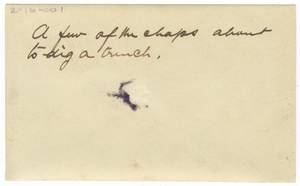 A few of the chaps about
to dig a trench.